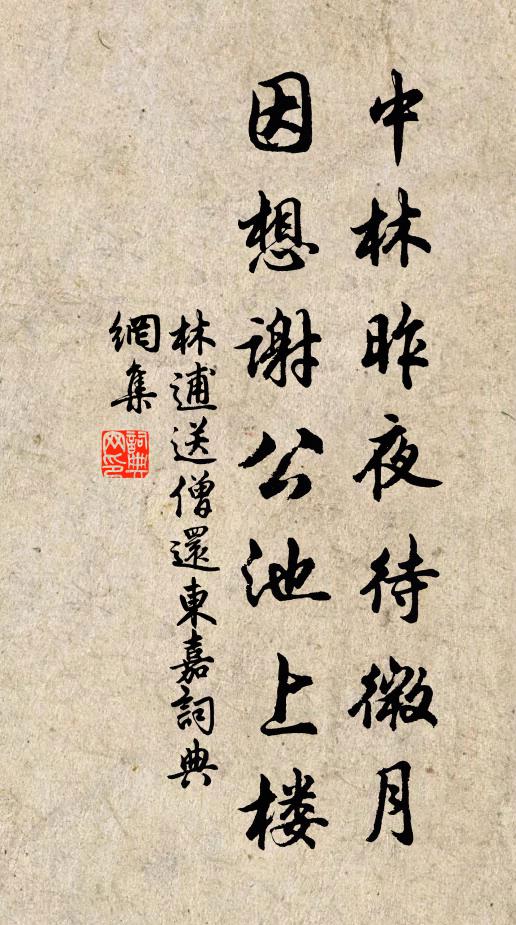 中林昨夜待微月
因想谢公池上楼
林逋送僧還東嘉詞典
網集
詞典网印